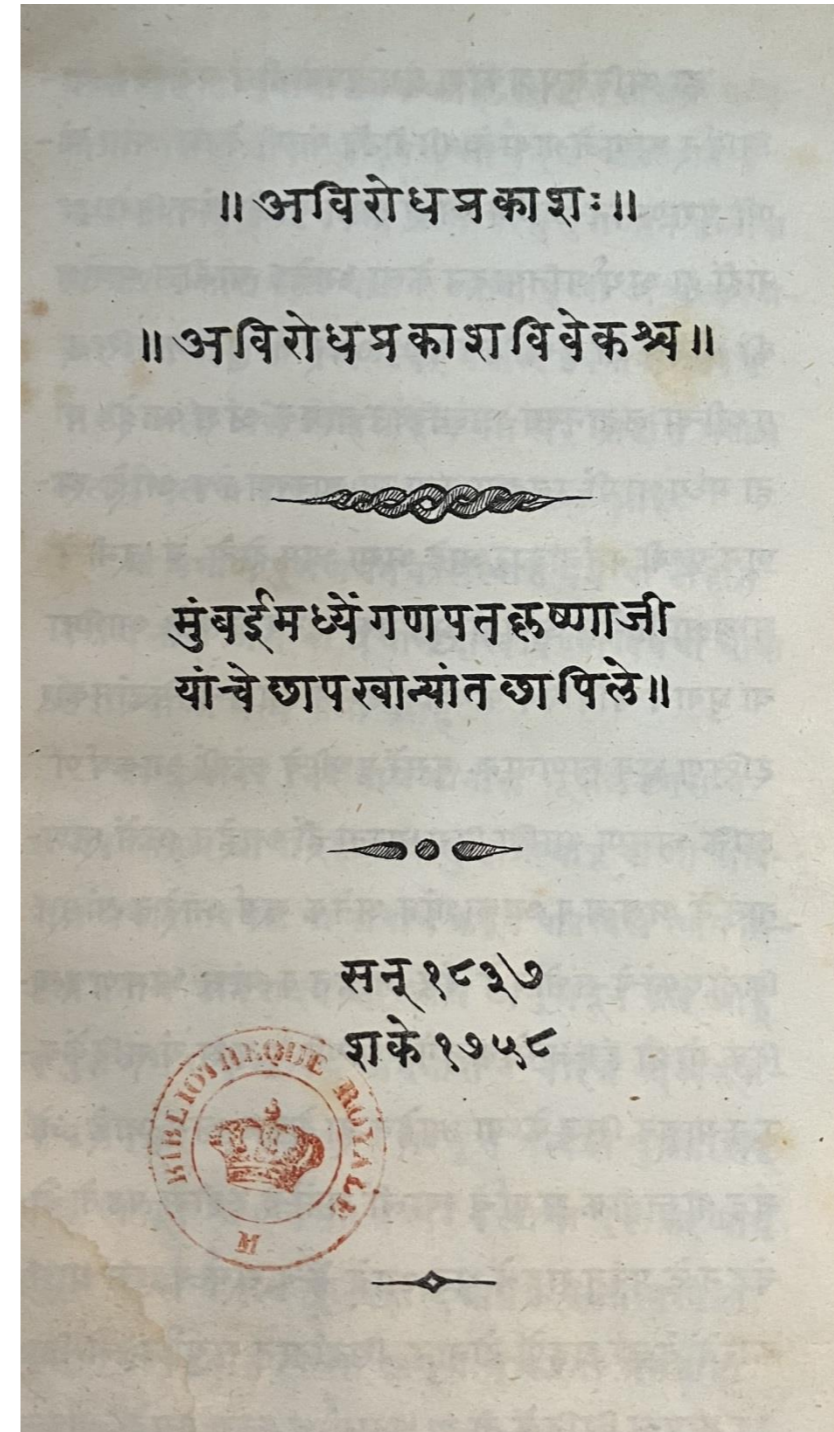 ॥ अविरोधप्रकाशः ॥
॥ अविरोधप्रकाशविवेकश्च ॥
मुंबईमध्यें गणपत कृष्णाजी
यांचे छापखान्यांत छापिले ॥
सन् १८३७
शके १७५८
BIBLIOTHEQUE ROYALE
M